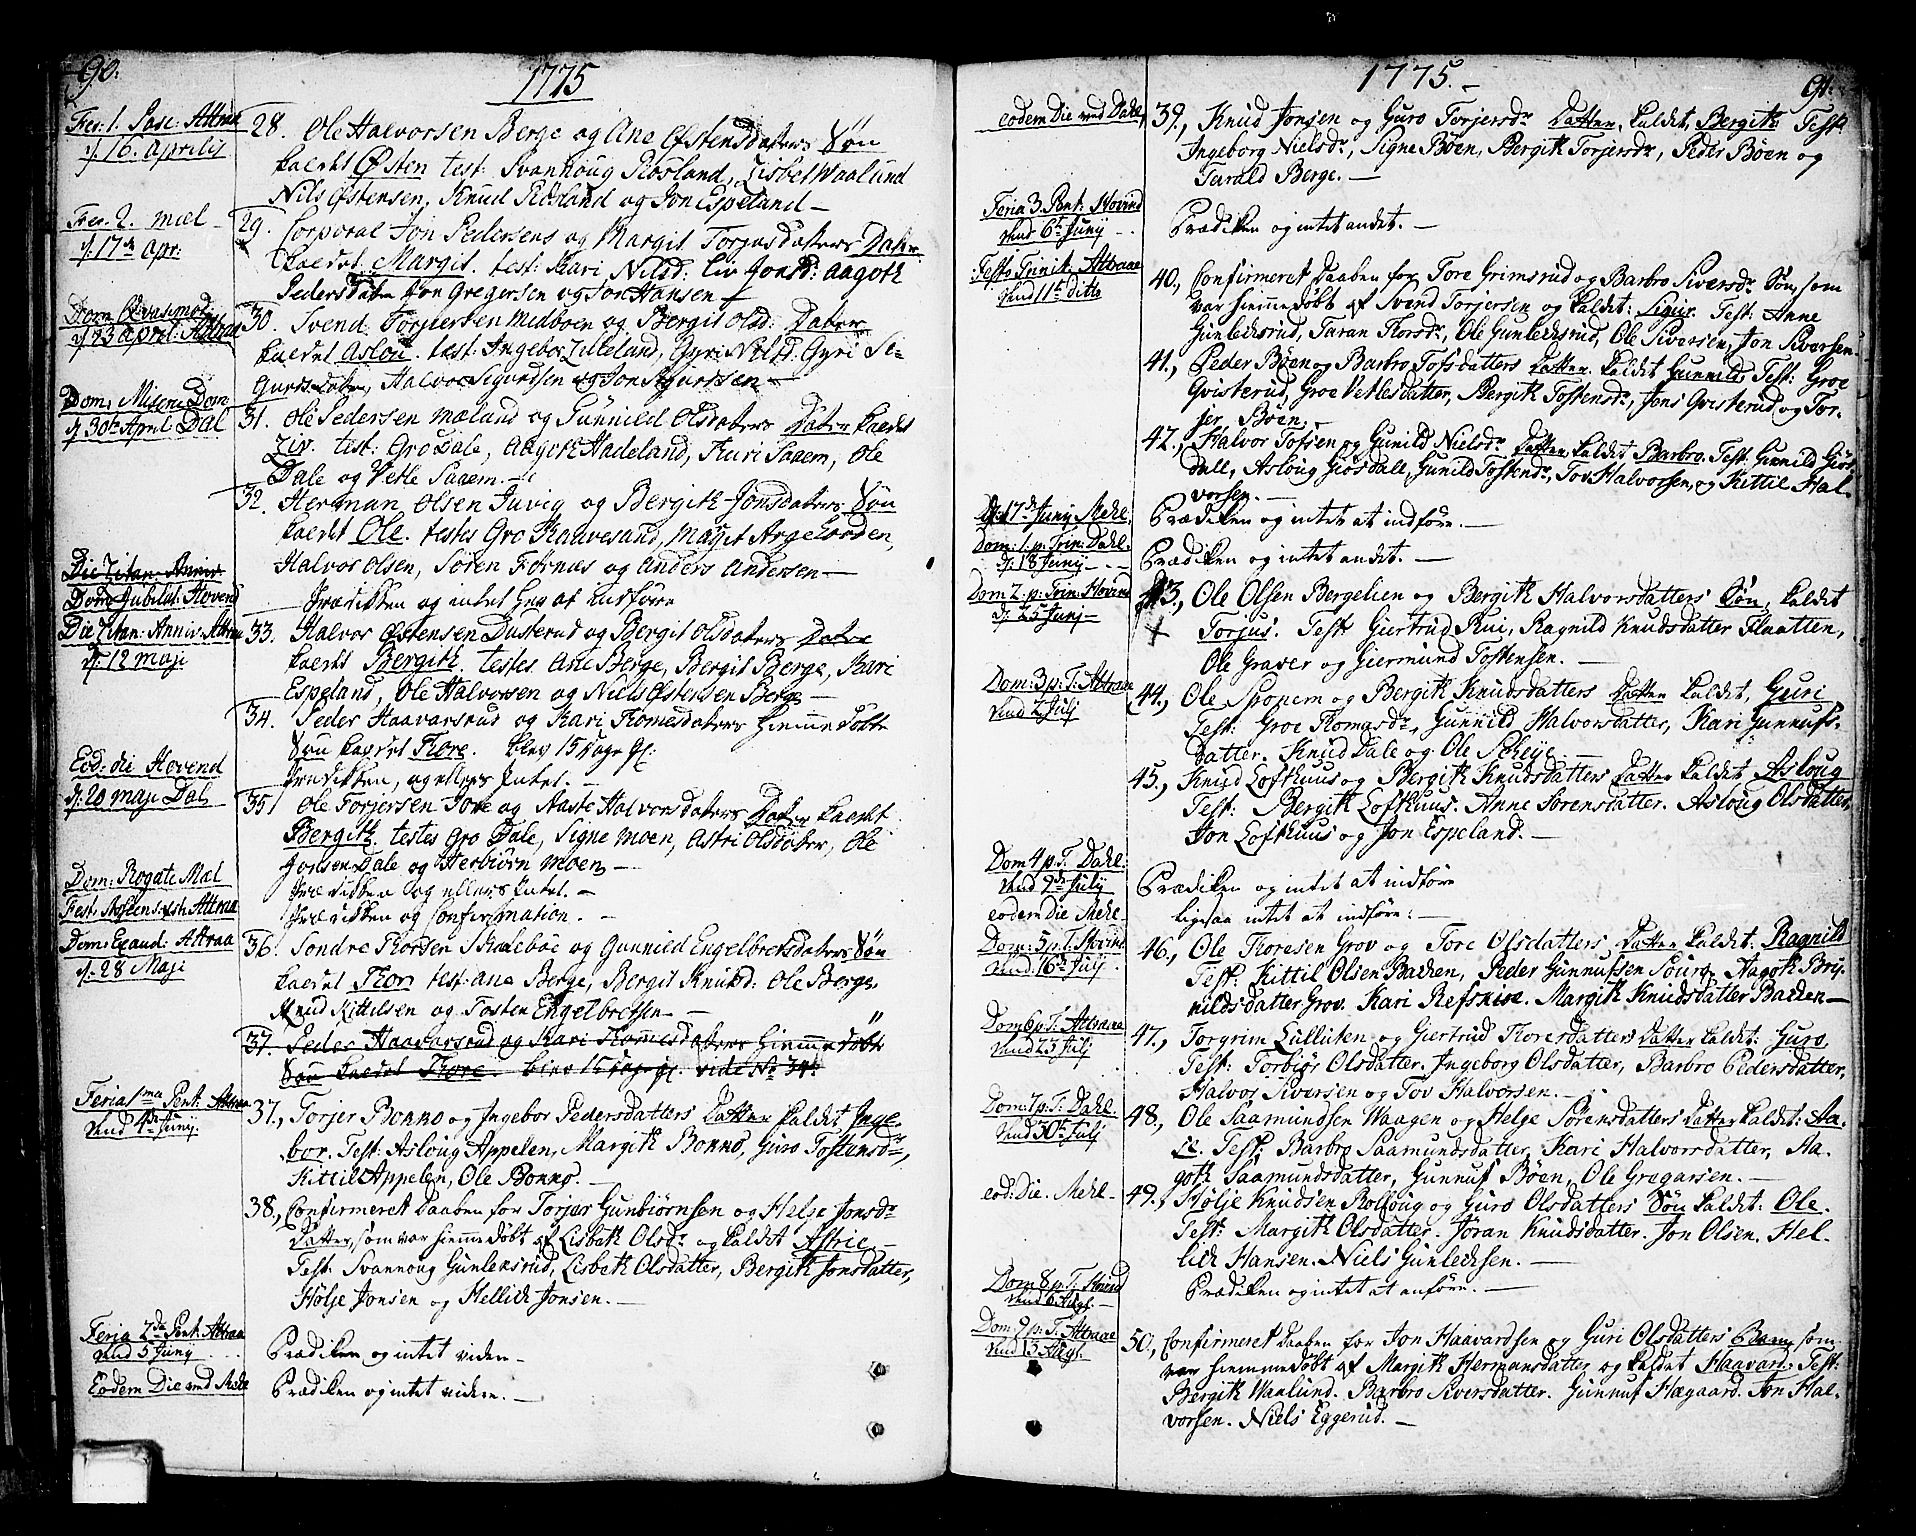 90.
1775
Fer: 1. Pasc: Attraa
d. 16. Aprilis
28. Ole Halvorsen Berge og Ane Østensdaters Søn
kaldet Østen test: Svanhoug Rosland, Lisbet Waalund
Nils Østensen, Knud Rosland og Jon Espeland —
Fer. 2. Mæl —
d. 17de Apr:
29. Corporal Jon Pedersens og Margit Torjusdatters Dater
kaldet Margit. test: Kari Nilsd: Liv Jonsd: Aagoth
Pedersdater Jon Gregersen og Jon Hansen —
Dom Qvasimod.
d. 23 April: Attraa
30. Svend Torjersen Medboen og Bergit Olsd: Dater
kaldet Aslou. test: Ingebor Lilleland, Gyri Nilsd. Gyri Si-
gursdater, Halvor Sigurdsen og Jon Sigurdsen —
Dom. Miseric Dom
d. 30te April Dal
31. Ole Pedersen Mæland og Gunnild Olsdaters Dater kaldet
Liv. test: Gro Dale, Aagoth Hadeland, Kari Saaem, Ole
Dale og Vetle Saaem. —
32. Herman Olsen Juvig og Bergith Jonsdaters Søn
kaldet Ole. testes Gro Kaavesand, Maget Argehovden,
Halvor Olsen, Søren Fornæs og Anders Andersen —
Die Litan: Anniv.
Dom Jubilat: Hovend
Prædikken og intet her at indføre
Die Litan: Anniv. Attraa
d. 12 Maji
33. Halvor Østensen Dusterud og Bergit Olsdaters Datre
kaldet Bergith. testes Ane Berge, Bergit Berge, Kari
Espeland, Ole Halvorsen og Niels Østensen Berge —
34. Peder Haavarsrud og Kari Tomesdaters hiemme døbte
Søn kaldet Tore. blev 15 dage gl.
Eod: die Hovend
Prædikken, og ellers Intet. —
d. 20 Maji Dal
35. Ole Torjersen Jore og Aaste Halvorsdaters Dater kaldet
Bergith. testes Gro Dale, Signe Moen, Astri Olsdater, Ole
Jonsen Dale og Herbiørn Moen —
Dom: Rogate Mæl
Prædikken og ellers Intet. —
Fest. Ascens. Attraa
Prædikken og Confirmation. —
Dom: Exaud: Attraa
d. 28 Maji
36. Sondre Torsen Skaleboe og Gunnild Engelbretsdaters Søn
kaldet Tor test: Ane Berge, Bergit Knudsd: Ole Berge,
Knud Kittelsen og Tosten Engelbretsen — —
37. Peder Haavarsrud og Kari Tommesdaters hiemmedøbte
Søn kaldet Tore. blev 15 dage gl. vide No 34
Feria 1ma Pent: Attraa
Mens 4de Junij.
37., Torjer Bonno og Ingebor Pedersdatters Datter kaldet Inge-
bor. Test: Asloug Appelen, Margith Bonno, Guro Tostensdr,
Kittil Appelen, Ole Bonno. —
38., Confirmeret Daaben for Torjer Gunbiørnsen og Helje Jonsdr
Datter, som var hiemmedøbt af Lisbeth Olsdr og kaldet Astrie. —
Test: Svannoug Gunleksrud, Lisbeth Olsdatter, Bergith Jonsdatter,
Hølje Jonsen og Hellich Jonsen. —
Feria 2da Pent. Attraa
5 Junij
Prædiken og intet viden —
Eodem Die ved Mehl
Prædiken og intet videre. —
1775. —
91.
eodem Die ved Dahl
39., Knud Jonsen og Guro Torjersdr Datter, kaldet, Bergith Test:
Ingeborg Nielsdr, Signe Bøen, Bergith Torjersdr, Peder Bøen og
Tarald Berge. —
Feria 3. Pent: Hovind
6te Junij
Prædiken og intet andet. —
Festo Trinit. Attraae
11te ditto
40., Confirmeret Daaben for Tore Grimsrud og Barbro Siversdr Søn, som
var hiemmedøbt af Svend Torjersen og kaldet: Sigur. Test: Anne
Gunlecksrud, Taran Torsdr, Ole Gunlecksrud, Ole Siversen, Jon Siversen.
41., Peder Bøen og Barbro Tofsdatters Datter kaldet Gunnild, Test: Groe
Qvisterud, Groe Vetlesdatter, Bergith Tostensdr, Jons Qvisterud og Tor-
jer Bøen. —
42., Halvor Tofsen og Gunild Nielsdr Datter kaldet Barbro. Test: Gunnild Giøs-
dall, Asloug Giøsdall, Gunild Tostensdr, Tov Halvorsen, og Kittil Hal-
vorsen. —
d. 17de Junij Mehl.
Prædiken og intet at indføre. —
Dom: 1. p. Trin: Dahl.
d. 18 Junij —
Prædiken og intet andet. —
Dom 2. p: Trin: Hovind
d: 25 Junj —
43., Ole Olsen Bergelien og Bergith Halvorsdatters Søn, kaldet
Torjus. Test: Giertrud Rui, Ragnild Knudsdatter Flaatten,
Ole Graver og Giermund Tostensen. —
Dom: 3 p: T: Attraae
2 Julj
44., Ole Sponem og Bergith Knudsdatters Datter kaldet, Guri
Test: Groe Tomasdr, Gunnild Halvorsdatter, Kari Gunnufs-
datter. Knud Dale og Ole Scheye. —
45., Knud Lofthuus og Bergith Knudsdatters Datter kaldet Asloug
Test: Bergith Lofthuus. Anne Sørensdatter. Asloug Olsdatter,
Jon Lofthuus og Jon Espeland. —
Dom 4 p. T. Dahl:
9de Julij
Prædiken og intet at indføre
eodem Die Mehl. —
ligesaa intet at indføre: —
Dom: 5 p. T. Hovind
16de Julj
46., Ole Thoresen Grov og Tore Olsdatters Datter kaldet: Ragnild
Test: Kittil Olsen Backen, Peder Gunnufsen Sourg, Aagoth Bry-
nildsdatter Grov. Kari Refsnise. Margith Knudsdatter Backen —
Dom 6 p. T. Attraae
23 Julj
47., Torgrim Lulliten og Giertrud Thoresdatters Datter kaldet: Guro.
Test: Torbiør Olsdatter. Ingeborg Olsdatter, Barbro Pedersdatter,
Halvor Siversen og Tov Halvorsen. —
Dom: 7 p T. Dahl.
30te Julj
48., Ole Saamundsen Waagen og Helge Sørensdatters Datter kaldet: Aa-
se. Test: Barbro Saamundsdatter, Kari Halvorsdatter, Aa-
goth Saamundsdatter, Gunnuf Bøen, Ole Gregarsen. —
eod: Die. Mehl —
49., Hølje Knudsen Rolloug og Guro Olsdatters Søn kaldet: Ole.
Test: Margith Olsdatter. Jøran Knudsdatter. Jon Olsen. Hel-
lich Hansen. Niels Gunlechsen. —
Dom 8 p. T: Hovind
6 Augs. —
Prædiken og intet at anføre. —
Dom 9 p. T. Attraae
13 Augs. —
50., Confirmeret Daaben for Jon Haavardsen og Guri Olsdatters Barn, som
var hiemmedøbt af Margith Hermansdatter og kaldet Haavar: Test:
Bergith Waalund. Barbro Siversdatter. Gunnuf Hægaard. Jon Hal-
vorsen. Niels Eggerud. —